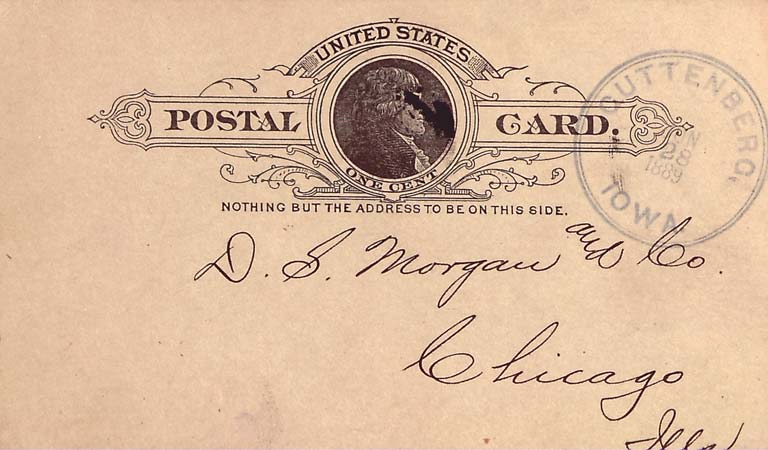 UNITED STATES
POSTAL CARD.
ONE CENT
NOTHING BUT THE ADDRESS TO BE ON THIS SIDE.
GUTTENBERG,
28
1889
IOWA
D. S. Morgan and Co.
Chicago
Ills